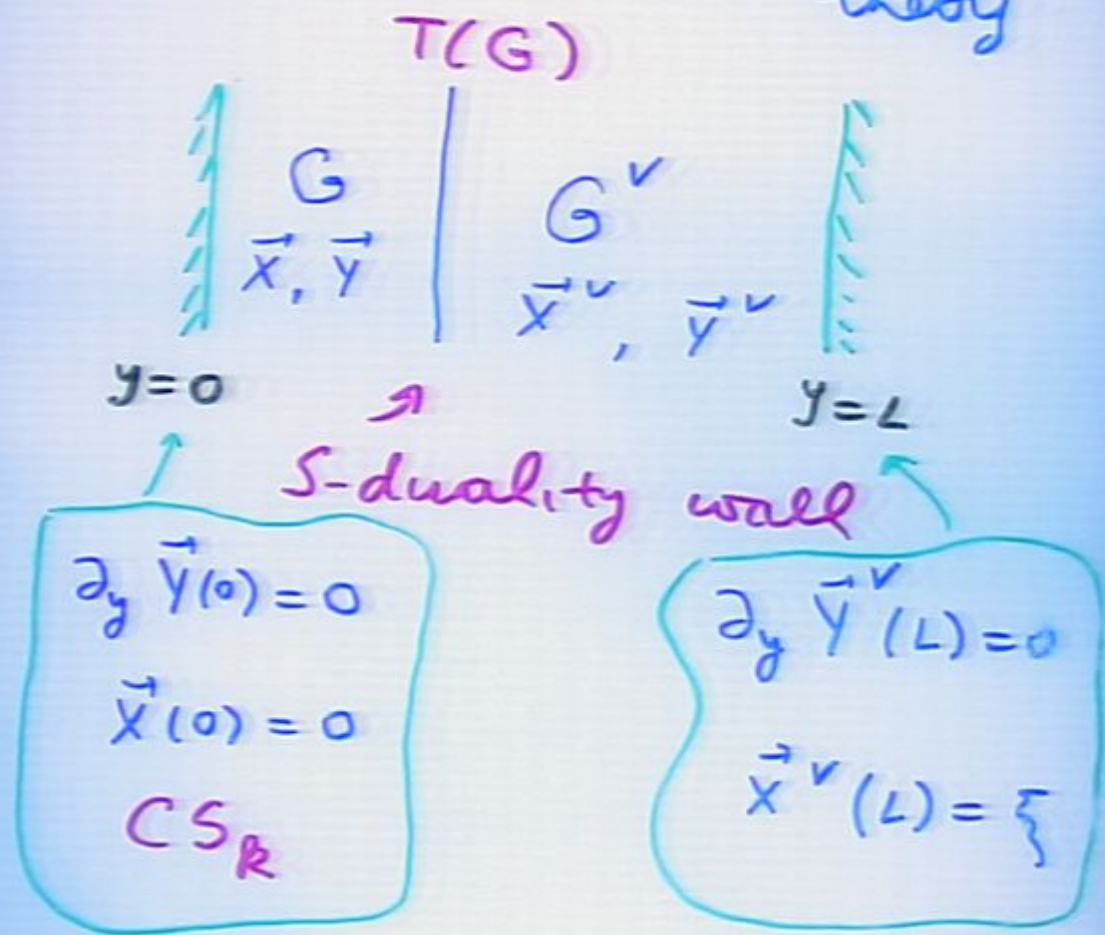 theory
T(G)
G
G^∨
X⃗, Y⃗
X⃗^∨, Y⃗^∨
y=0
y=L
S-duality wall
∂_y Y⃗(0) = 0
X⃗(0) = 0
CS_k
∂_y Y⃗^∨(L) = 0
X⃗^∨(L) = ξ